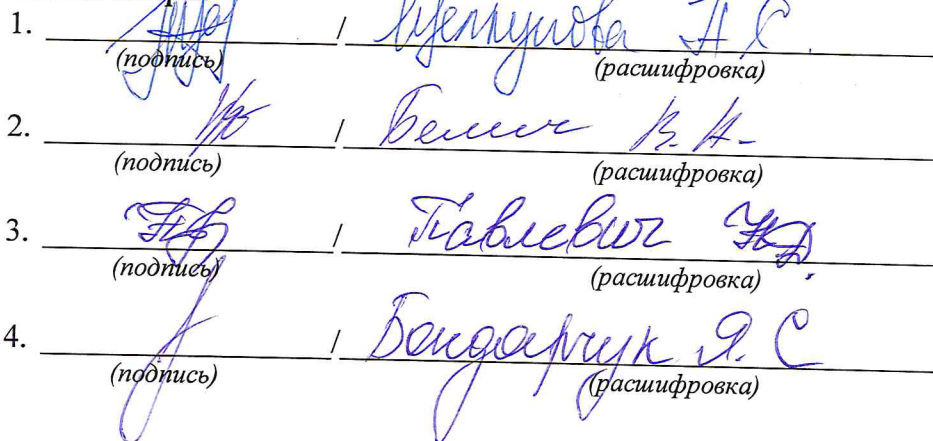 1. / А. С.
(подпись) (расшифровка)
2. / Белич В. Н.
(подпись) (расшифровка)
3. / Павлевич Н.Д.
(подпись) (расшифровка)
4. / Бондарчук Я. С
(подпись) (расшифровка)